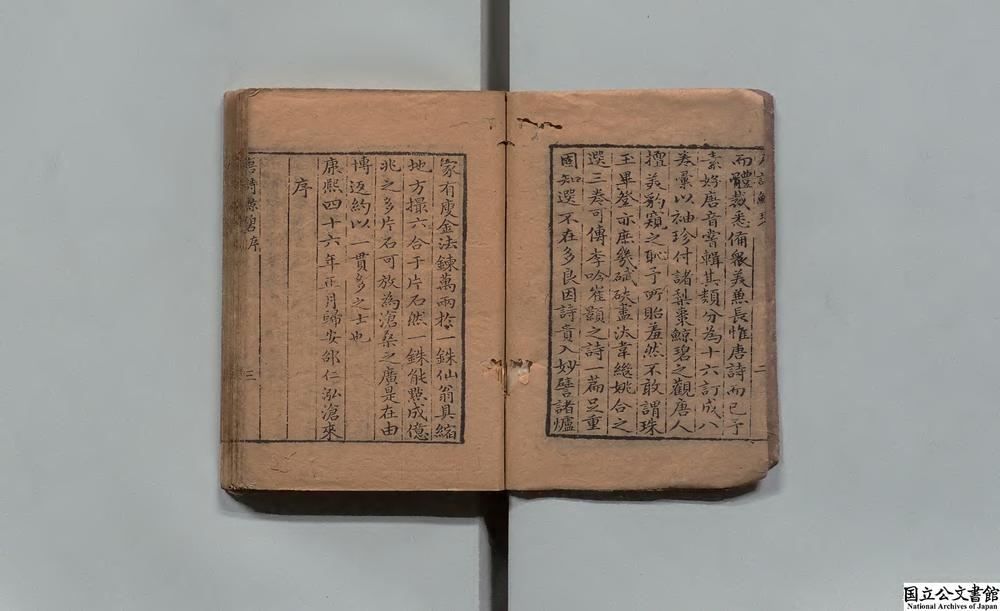 二
而體裁悉備衆美兼長惟唐詩而已予
素好唐音嘗輯其類分為十六訂成八
卷彙以袖珍付諸梨棗鯨碧之觀唐人
擅美豹窺之恥予所貽羞然不敢謂珠
玉畢登亦庶幾碔砆盡汰韋縠姚合之
選三卷可傳李吟崔顥之詩一篇足重
固知選不在多良因詩貴入妙譬諸爐
家有庾金法鍊萬兩扵一銖仙翁具縮
地方撮六合于片石然一銖能點成億
兆之多片石可放為滄桑之廣是在由
博返約以一貫多之士也
康熙四十六年正月歸安邵仁泓滄來
序
唐詩鯨碧序 三
国立公文書館
National Archives of Japan